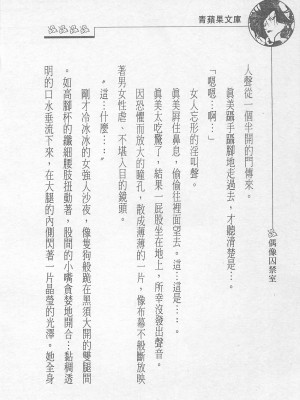 青蘋果文庫
偶像囚禁室
人聲從一個半開的門傳來。
「嗯嗯…啊…」
眞美躡手躡腳地走過去，才聽清楚是…。
女人忘形的淫叫聲。
眞美屏住鼻息，偷偷往裡面望去。這…這是…‥。
眞美太吃驚了，結果一屁股坐在地上，所幸沒發出聲音。
因恐懼而放大的瞳孔，散成薄薄的一片，像布幕不般斷放映
著男女性虐、不堪入目的鏡頭。
〝這…什麼…〞
剛才冷冰冰的女強人沙夜，像隻狗般跪在黑須大開的雙腿間
。如高腳杯的纖細腰肢扭動著，股間的小嘴貪婪地開合…黏稠透
明的口水垂流下來，在大腿的內側閃著一片晶瑩的光澤。她全身